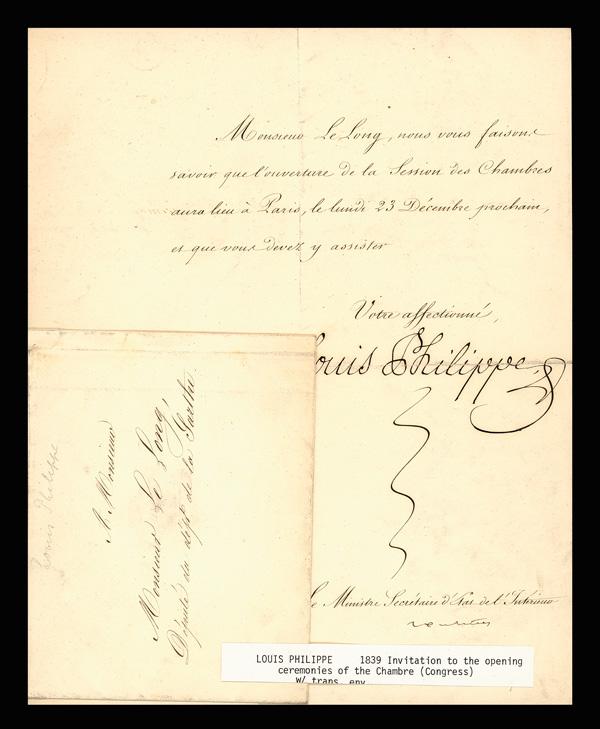 Monsieur Le Long, nous vous faisons
savoir que l'ouverture de la Session des Chambres
aura lieu à Paris, le lundi 23 Décembre prochain,
et que vous devez y assister
Votre affectionné,
Louis Philippe
Le Ministre Secrétaire d'Etat de l'Intérieur
A Monsieur
Monsieur Le Long,
Député du dépt de la Sarthe
Louis Philippe
LOUIS PHILIPPE 1839 Invitation to the opening
ceremonies of the Chambre (Congress)
W/ trans. env